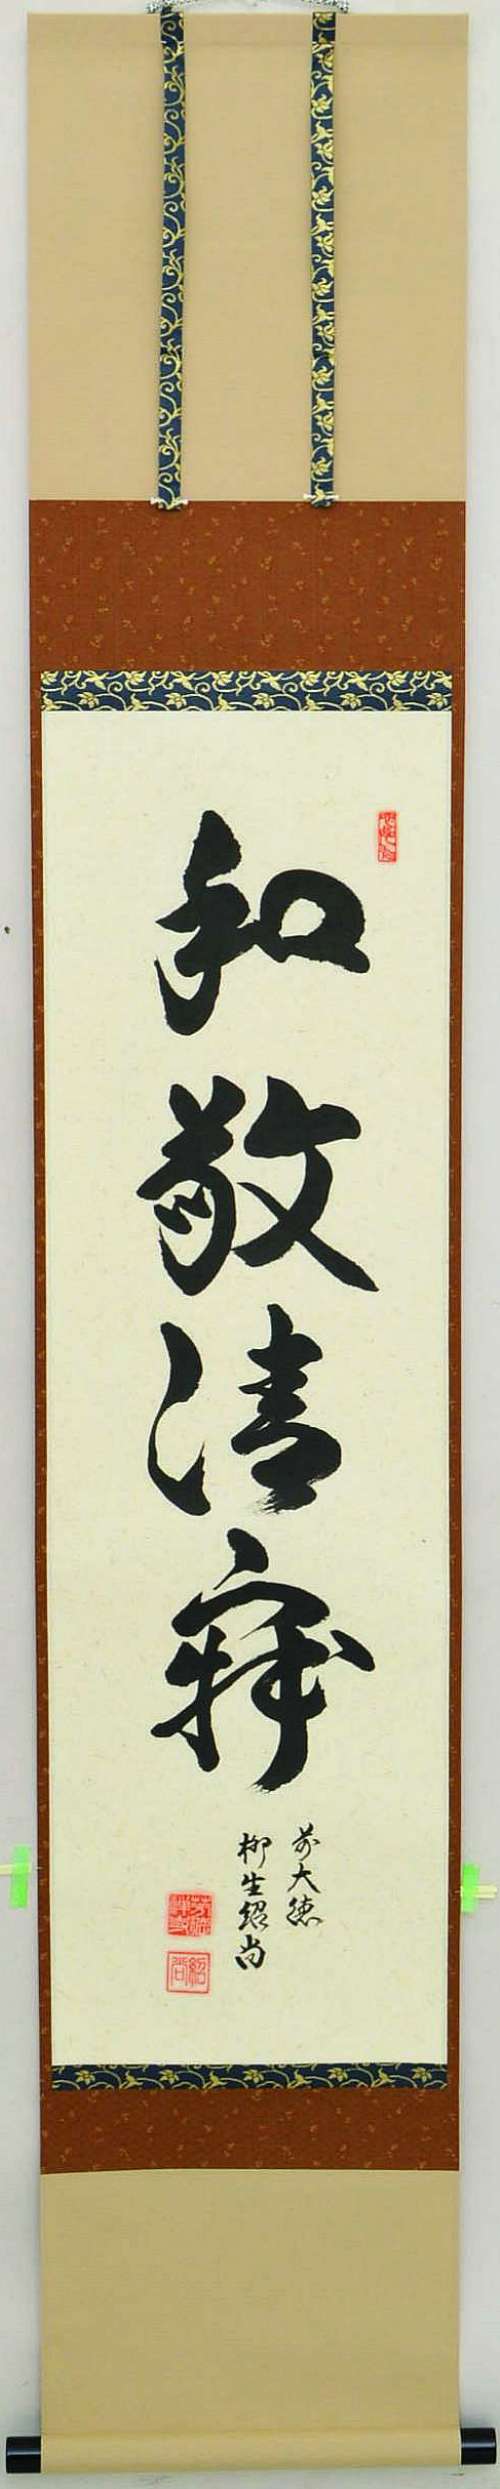 和敬清寂
前大徳
柳生紹尚
紹尚